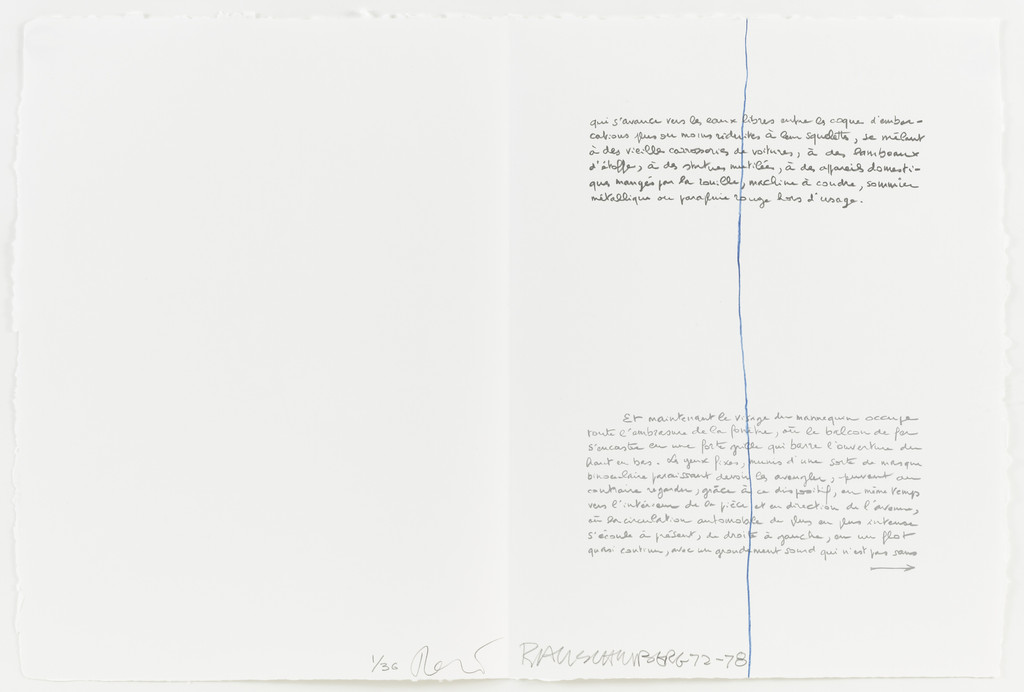 qui s'avance vers les eaux libres entre les coque d'embar-
cations plus ou moins réduites à leur squelette, se mêlant
à des vieille carrosseries de voitures, à des lambeaux
d'étoffe, à des statues mutilées, à des appareils domesti-
ques mangés par la rouille, machine à coudre, sommier
métallique ou parapluie rouge hors d'usage.
Et maintenant le visage du mannequin occupe
toute l'embrasure de la fenêtre, où le balcon de fer
s'encastre en une forte grille qui barre l'ouverture du
haut en bas. Les yeux fixes, munis d'une sorte de masque
binoculaire paraissant devoir les aveugler, peuvent au
contraire regarder, grâce à ce dispositif, en même temps
vers l'intérieur de la pièce et en direction de l'avenue,
où la circulation automobile de plus en plus intense
s'écoule à présent, de droite à gauche, en un flot
quasi continu, avec un grondement sourd qui n'est pas sans
1/36 RAUSCHENBERG 72-78